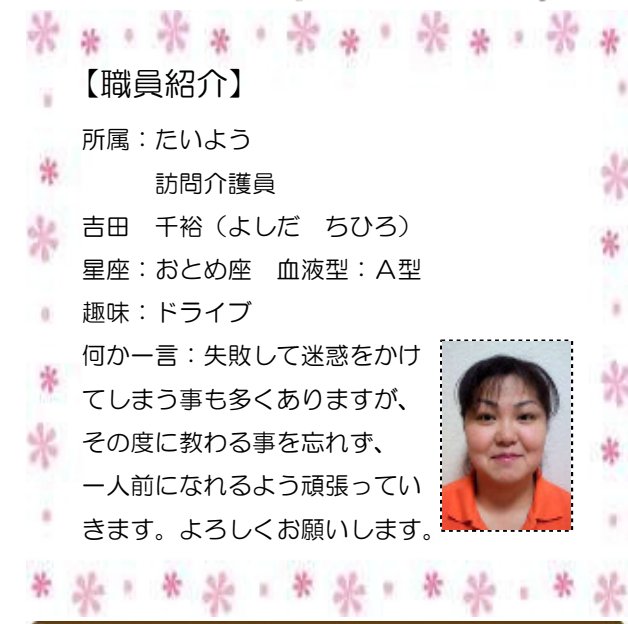 【職員紹介】
所属：たいよう
訪問介護員
吉田　千裕（よしだ　ちひろ）
星座：おとめ座　血液型：Ａ型
趣味：ドライブ
何か一言：失敗して迷惑をかけ
てしまう事も多くありますが、
その度に教わる事を忘れず、
一人前になれるよう頑張ってい
きます。よろしくお願いします。